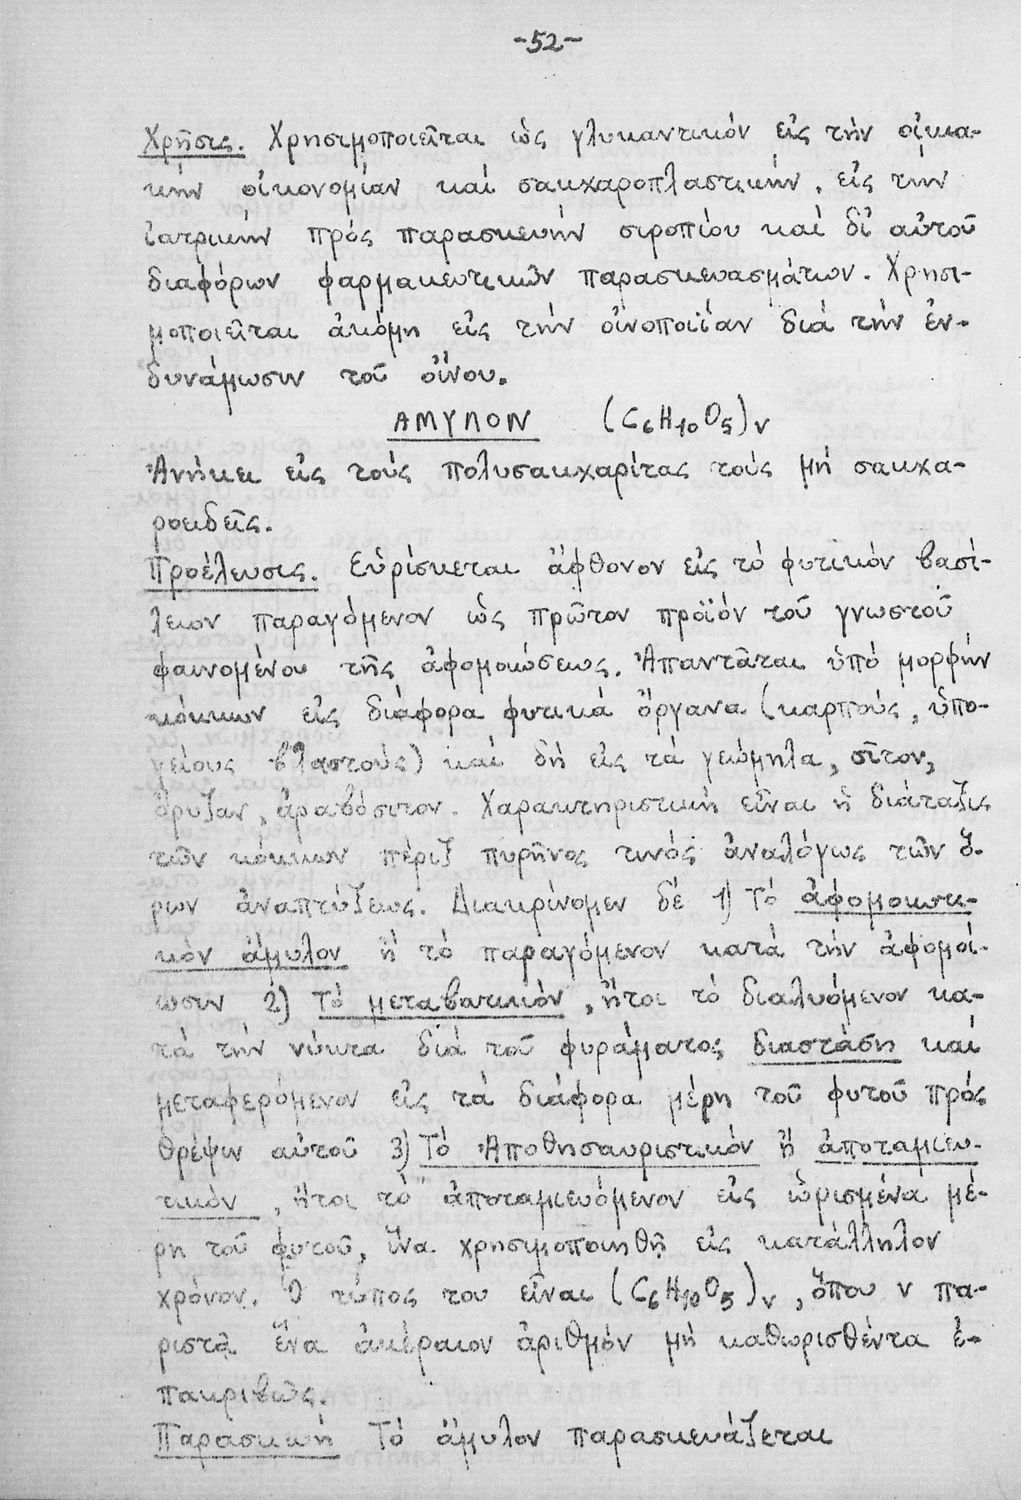 -52-
Χρῆσις. Χρησιμοποιεῖται ὡς γλυκαντικόν εἰς τήν οἰκια-
κήν οἰκονομίαν καί σακχαροπλαστικήν, εἰς τήν
ἰατρικήν πρός παρασκευήν σιροπίου καί δι' αὐτοῦ
διαφόρων φαρμακευτικῶν παρασκευασμάτων. Χρησι-
μοποιεῖται ἀκόμη εἰς τήν οἰνοποιΐαν διά τήν ἐν-
δυνάμωσιν τοῦ οἴνου.
ΑΜΥΛΟΝ (C₆H₁₀O₅)ν
Ἀνήκει εἰς τούς πολυσακχαρίτας τούς μή σακχα-
ροειδεῖς.
Προέλευσις. Εὑρίσκεται ἄφθονον εἰς τό φυτικόν βασί-
λειον παραγόμενον ὡς πρῶτον προϊόν τοῦ γνωστοῦ
φαινομένου τῆς ἀφομοιώσεως. Ἀπαντᾶται ὑπό μορφήν
κόκκων εἰς διάφορα φυτικά ὄργανα (καρπούς, ὑπο-
γείους βλαστούς) καί δή εἰς τά γεώμηλα, σῖτον,
ὄρυζαν, ἀραβόσιτον. Χαρακτηριστική εἶναι ἡ διάταξις
τῶν κόκκων πέριξ πυρῆνος τινός ἀναλόγως τῶν ὅ-
ρων ἀναπτύξεως. Διακρίνομεν δέ 1) Τό ἀφομοιωτι-
κόν ἄμυλον ἤ τό παραγόμενον κατά τήν ἀφομοί-
ωσιν 2) Τό μεταβατικόν, ἤτοι τό διαλυόμενον κα-
τά τήν νύκτα διά τοῦ φυράματος διαστάση καί
μεταφερόμενον εἰς τά διάφορα μέρη τοῦ φυτοῦ πρός
θρέψιν αὐτοῦ 3) Τό Ἀποθησαυριστικόν ἤ ἀποταμιευ-
τικόν, ἤτοι τό ἀποταμιευόμενον εἰς ὡρισμένα μέ-
ρη τοῦ φυτοῦ, ἵνα χρησιμοποιηθῇ εἰς κατάλληλον
χρόνον. Ὁ τύπος του εἶναι (C₆H₁₀O₅)ν, ὅπου ν πα-
ριστᾷ ἕνα ἀκέραιον ἀριθμόν μή καθωρισθέντα ἐ-
πακριβῶς.
Παρασκευή Τό ἄμυλον παρασκευάζεται